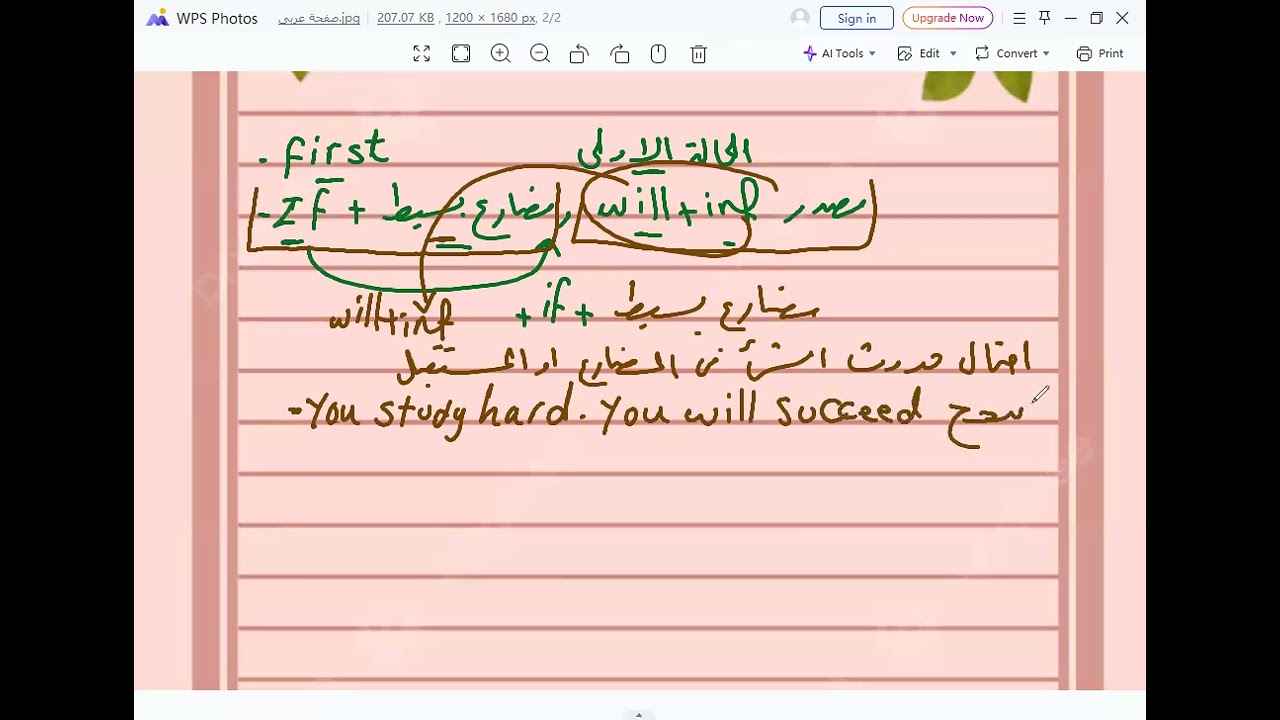 WPS Photos صفحة عربي.jpg 207.07 KB, 1200 × 1680 px, 2/2 Sign in Upgrade Now
AI Tools Edit Convert Print
. first الحالة الاولى
- If + مضارع بسيط , will + inf مصدر
will+inf + if + مضارع بسيط
احتمال حدوث الشئ فى المضارع او المستقبل
- You study hard. You will succeed نجح